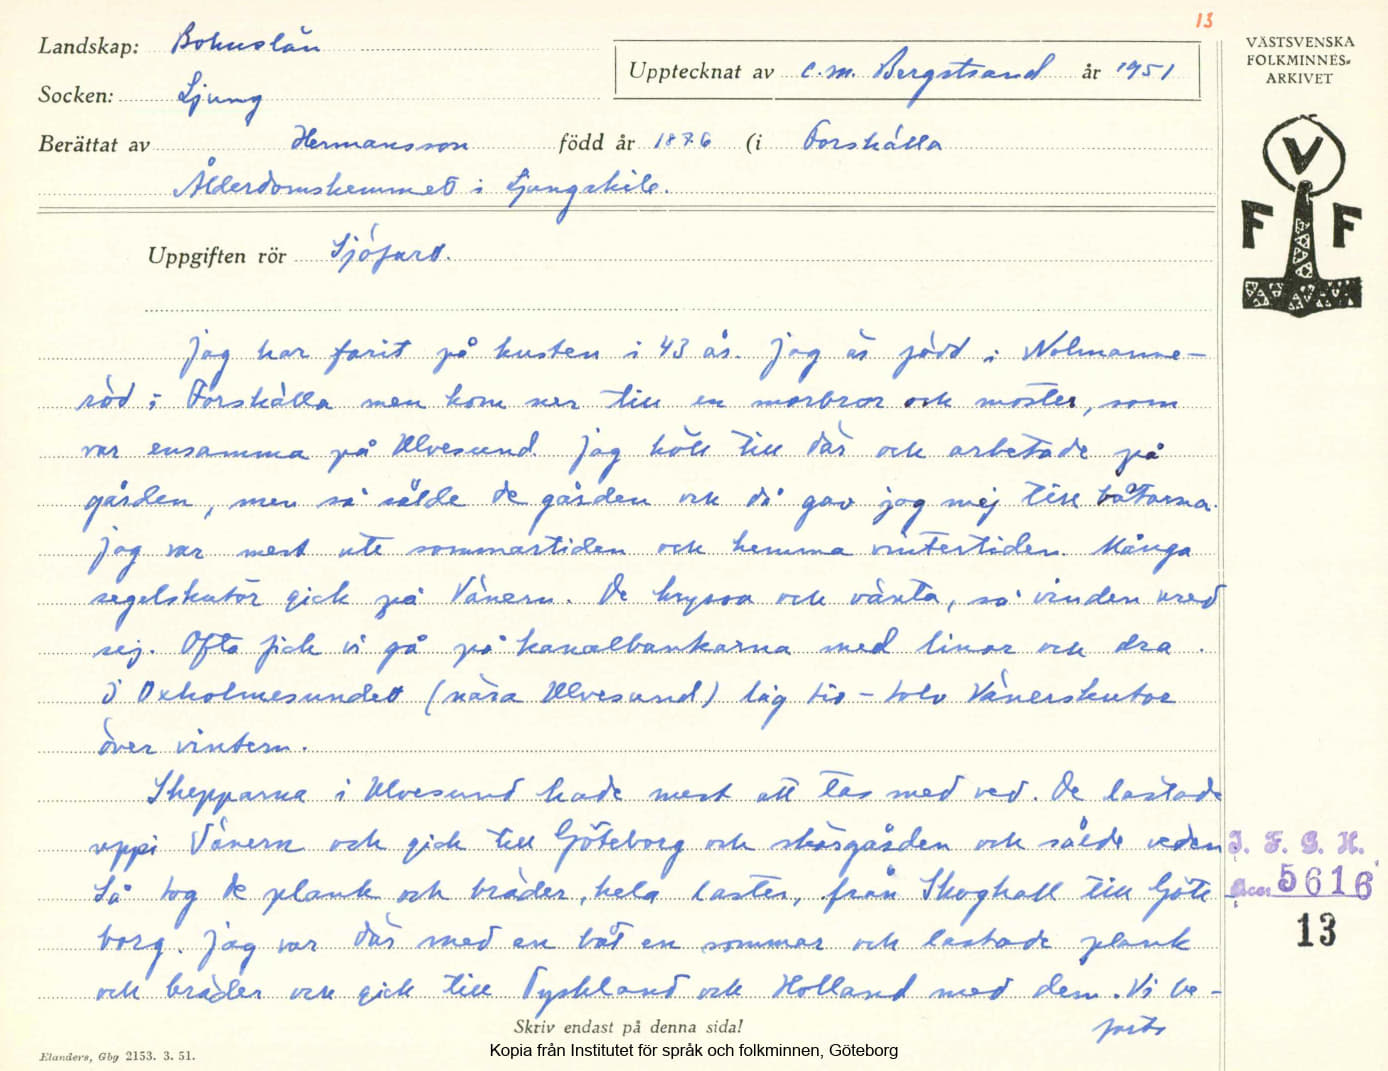 13
Landskap: Bohuslän
Upptecknat av C.M. Bergstrand år 1951
VÄSTSVENSKA
FOLKMINNES-
ARKIVET
Socken: Ljung
Berättat av Hermansson född år 1876 (i Forshälla
Ålderdomshemmet i Ljungskile.
V
F F
Uppgiften rör Sjöfart.
Jag har farit på kusten i 43 år. Jag är född i Nolmanne-
röd i Forshälla men kom ner till en morbror och moster, som
var ensamma på Ulvesund. Jag höll till där och arbetade på
gården, men så sålde de gården och då gav jag mej till båtarna.
Jag var mest ute sommartiden och hemma vintertiden. Många
segelskutor gick på Vänern. De kryssa och vänta, så vinden vred
sej. Ofta fick vi gå på kanalbankarna med linor och dra.
I Oxholmesundet (nära Ulvesund) låg tio-tolv Vänerskutor
över vintern.
Skepparna i Ulvesund hade mest att tas med ved. De lastade
uppi Vänern och gick till Göteborg och skärgården och sålde veden
Så tog de plank och bräder, hela laster, från Skoghall till Göte
borg. Jag var där med en båt en sommar och lastade plank
och bräder och gick till Tyskland och Holland med dem. Vi be-
forts
I. F. G. H.
Acc. 5616
13
Skriv endast på denna sida!
Elanders, Gbg 2153. 3. 51.
Kopia från Institutet för språk och folkminnen, Göteborg